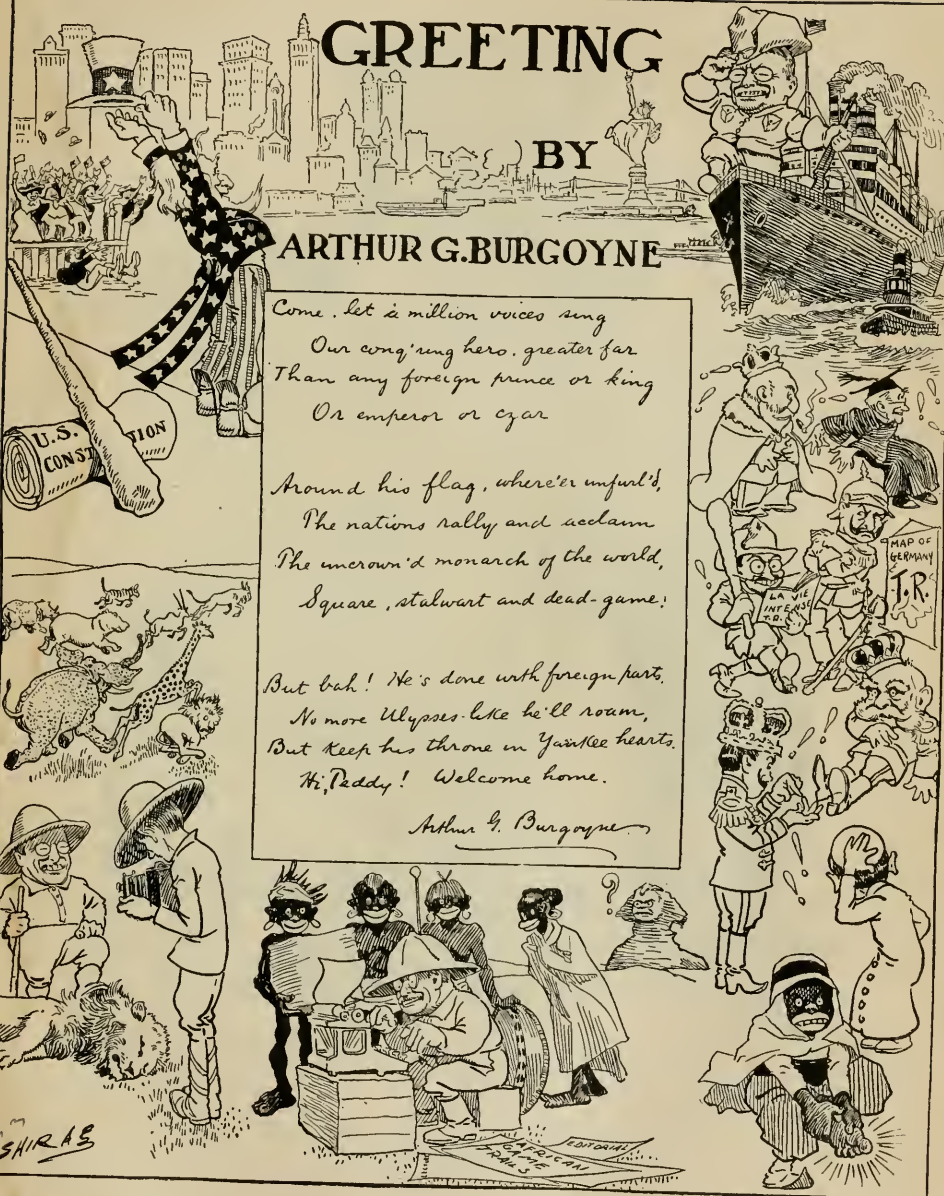 GREETING
BY
ARTHUR G. BURGOYNE
Come, let a million voices sing
Our conq'ring hero, greater far
Than any foreign prince or king
Or emperor or czar
Around his flag, where'er unfurl'd,
The nations rally and acclaim
The uncrown'd monarch of the world,
Square, stalwart and dead-game!
But bah! He's done with foreign parts.
No more Ulysses-like he'll roam,
But keep his throne in Yankee hearts.
Hi, Teddy! Welcome home.
Arthur G. Burgoyne
U.S.
CONST TION
MAP OF
GERMANY
T.R.
LA VIE
INTENSE
T.R.
?
AFRICAN
GAME
TRAILS
EDITORIAL
SHIRAS